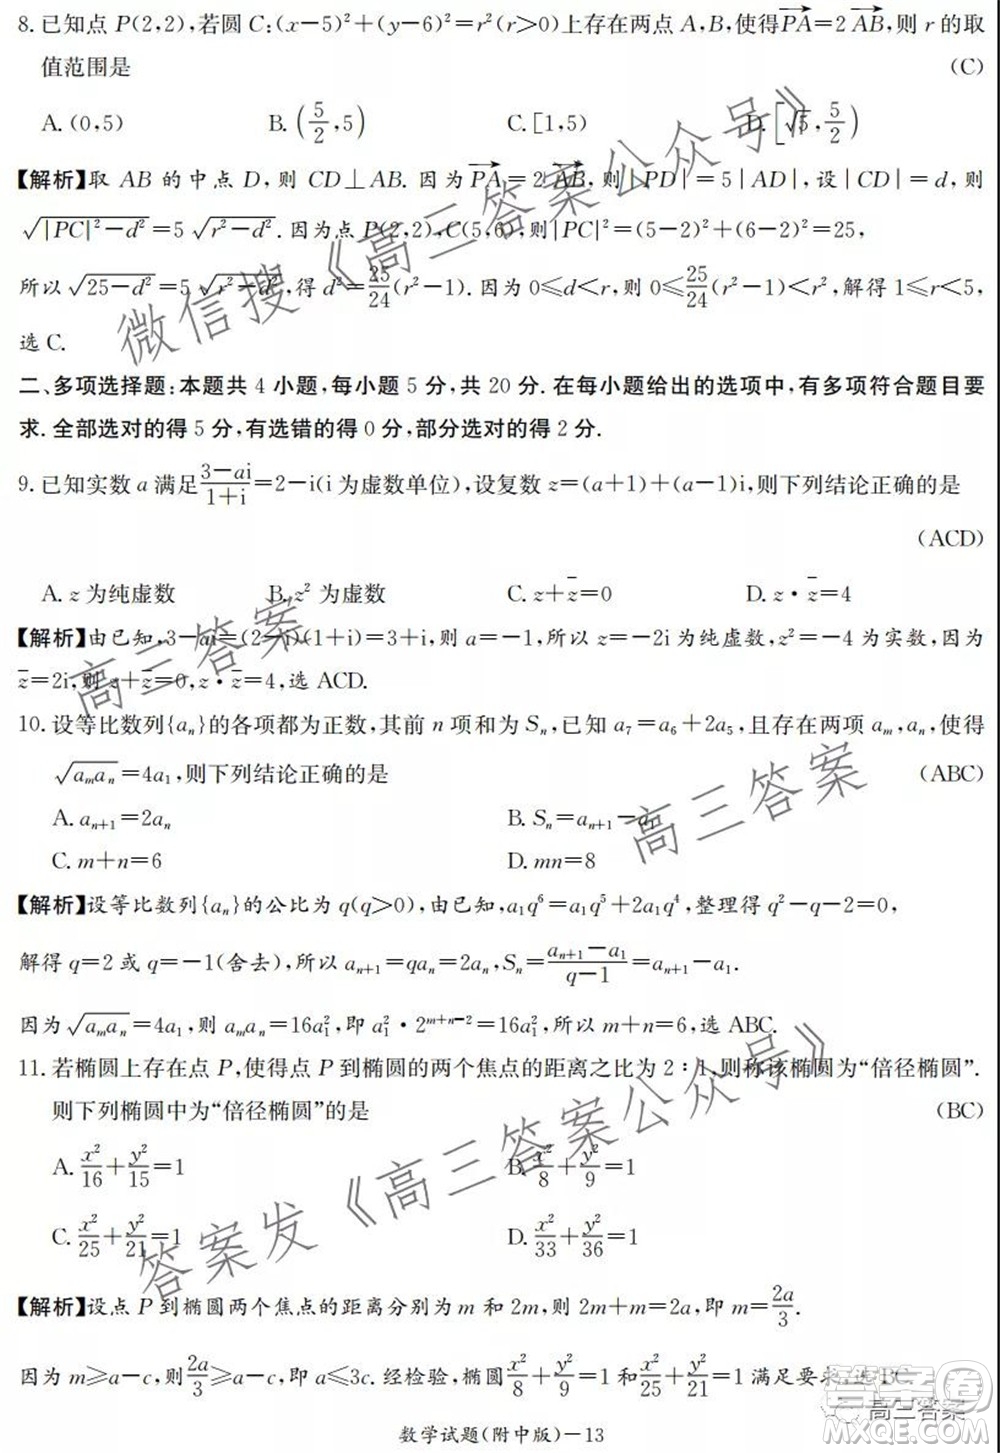 8. 已知点 P(2,2),若圆 C:(x−5)²+(y−6)²=r²(r>0)上存在两点 A,B,使得PA→=2 AB→,则 r 的取
值范围是 (C)
A. (0,5) B. (5/2,5) C. [1,5) D. [√5,5/2)
【解析】取 AB 的中点 D,则 CD⊥AB. 因为PA→=2 AB→,则|PD|=5|AD|,设|CD|=d,则
√(|PC|²−d²)=5 √(r²−d²). 因为点 P(2,2),C(5,6),则|PC|²=(5−2)²+(6−2)²=25,
所以√(25−d²)=5 √(r²−d²),得 d²=25/24(r²−1). 因为 0≤d<r,则 0≤25/24(r²−1)<r²,解得 1≤r<5,
选 C.
二、多项选择题:本题共 4 小题,每小题 5 分,共 20 分. 在每小题给出的选项中,有多项符合题目要
求. 全部选对的得 5 分,有选错的得 0 分,部分选对的得 2 分.
9. 已知实数 a 满足(3−ai)/(1+i)=2−i(i 为虚数单位),设复数 z=(a+1)+(a−1)i,则下列结论正确的是
(ACD)
A. z 为纯虚数 B. z² 为虚数 C. z+z̄=0 D. z·z̄=4
【解析】由已知,3−ai=(2−i)(1+i)=3+i,则 a=−1,所以 z=−2i 为纯虚数,z²=−4 为实数,因为
z̄=2i,则 z+z̄=0,z·z̄=4,选 ACD.
10. 设等比数列{aₙ}的各项都为正数,其前 n 项和为 Sₙ,已知 a₇=a₆+2a₅,且存在两项 aₘ,aₙ,使得
√(aₘaₙ)=4a₁,则下列结论正确的是 (ABC)
A. aₙ₊₁=2aₙ B. Sₙ=aₙ₊₁−a₁
C. m+n=6 D. mn=8
【解析】设等比数列{aₙ}的公比为 q(q>0),由已知,a₁q⁶=a₁q⁵+2a₁q⁴,整理得 q²−q−2=0,
解得 q=2 或 q=−1(舍去),所以 aₙ₊₁=qaₙ=2aₙ,Sₙ=(aₙ₊₁−a₁)/(q−1)=aₙ₊₁−a₁.
因为√(aₘaₙ)=4a₁,则 aₘaₙ=16a₁²,即 a₁²·2ᵐ⁺ⁿ⁻²=16a₁²,所以 m+n=6,选 ABC.
11. 若椭圆上存在点 P,使得点 P 到椭圆的两个焦点的距离之比为 2∶1,则称该椭圆为“倍径椭圆”.
则下列椭圆中为“倍径椭圆”的是 (BC)
A. x²/16+y²/15=1 B. x²/8+y²/9=1
C. x²/25+y²/21=1 D. x²/33+y²/36=1
【解析】设点 P 到椭圆两个焦点的距离分别为 m 和 2m,则 2m+m=2a,即 m=2a/3.
因为 m≥a−c,则2a/3≥a−c,即 a≤3c. 经检验,椭圆x²/8+y²/9=1 和x²/25+y²/21=1 满足要求,选 BC.
数学试题(附中版)−13
微信搜《高三答案公众号》
高三答案
高三答案
答案发《高三答案公众号》
高三答案
答案圈